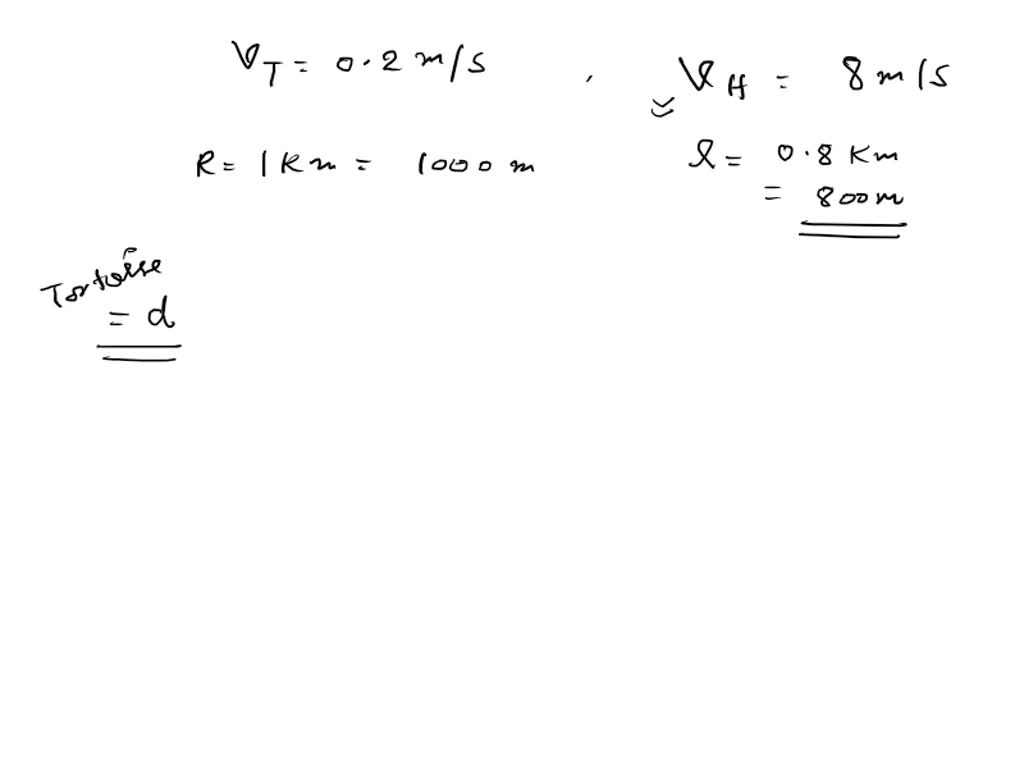 V_T = 0.2 m/s , V_H = 8 m/s
R = 1 Km = 1000 m
l = 0.8 Km
= 800 m
Tortoise
= d